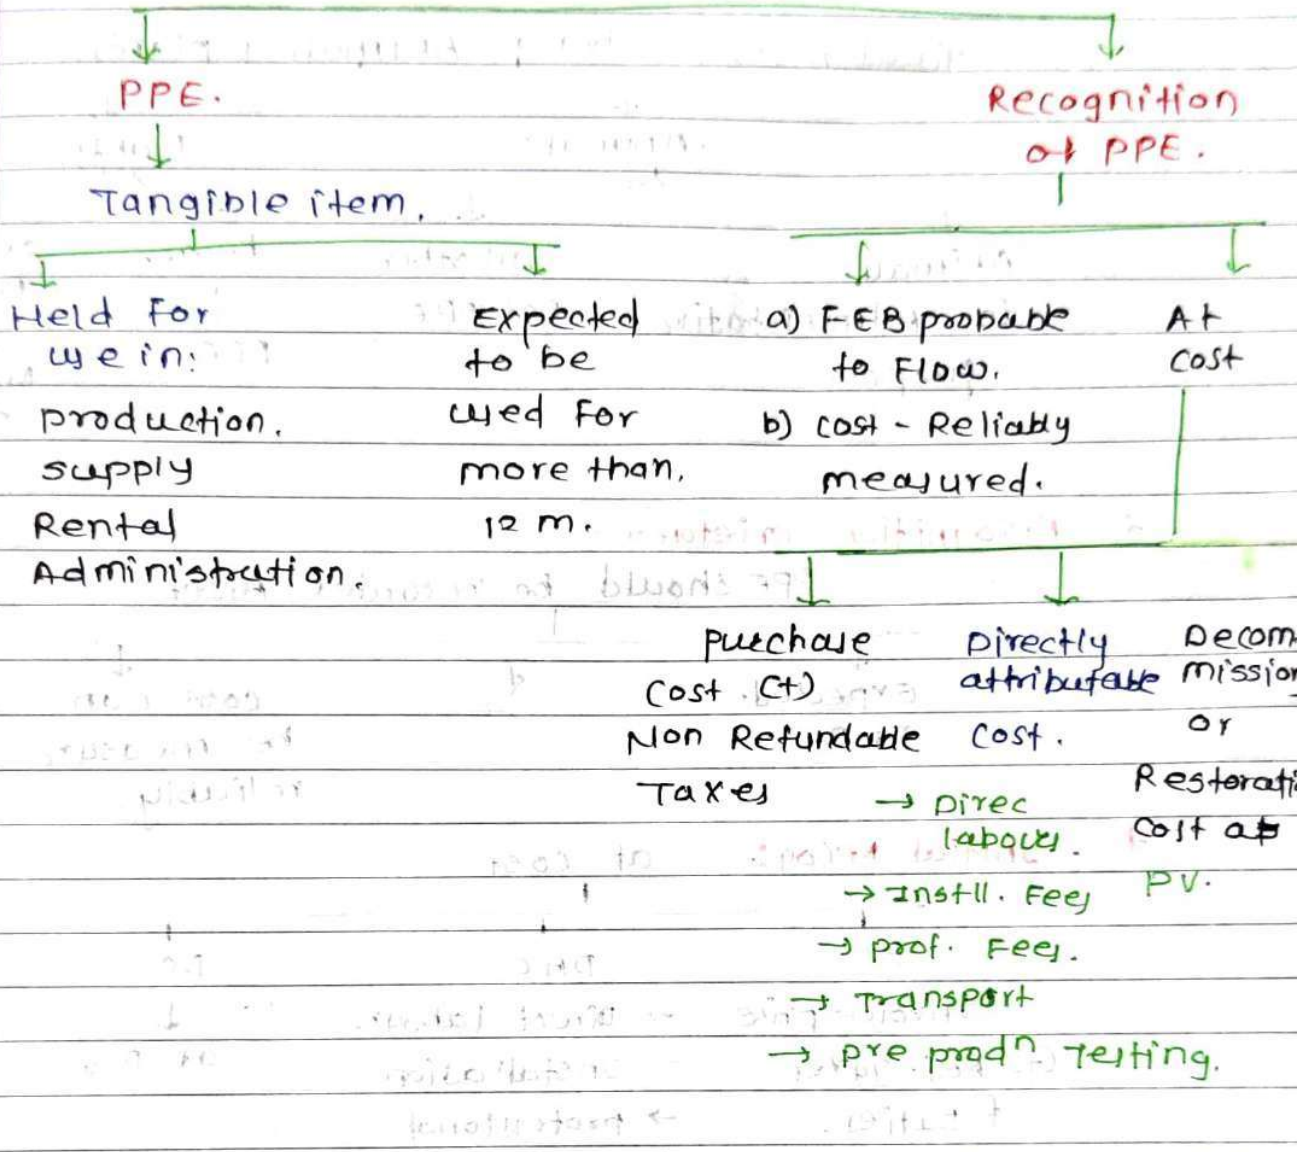 PPE.
Tangible item.
Held For
use in:
production.
supply
Rental
Administration.
Expected
to be
used For
more than.
12 m.
Recognition
of PPE.
a) FEB probable
to Flow.
b) cost - Reliably
measured.
At
cost
purchase
cost. (+)
Non Refundable
Taxes
Directly
attributable
cost.
→ Direc
labour.
→ Instll. Fees
→ prof. Fees.
→ Transport
→ pre prodⁿ Testing.
Decom
mission
or
Restorati
cost at
PV.